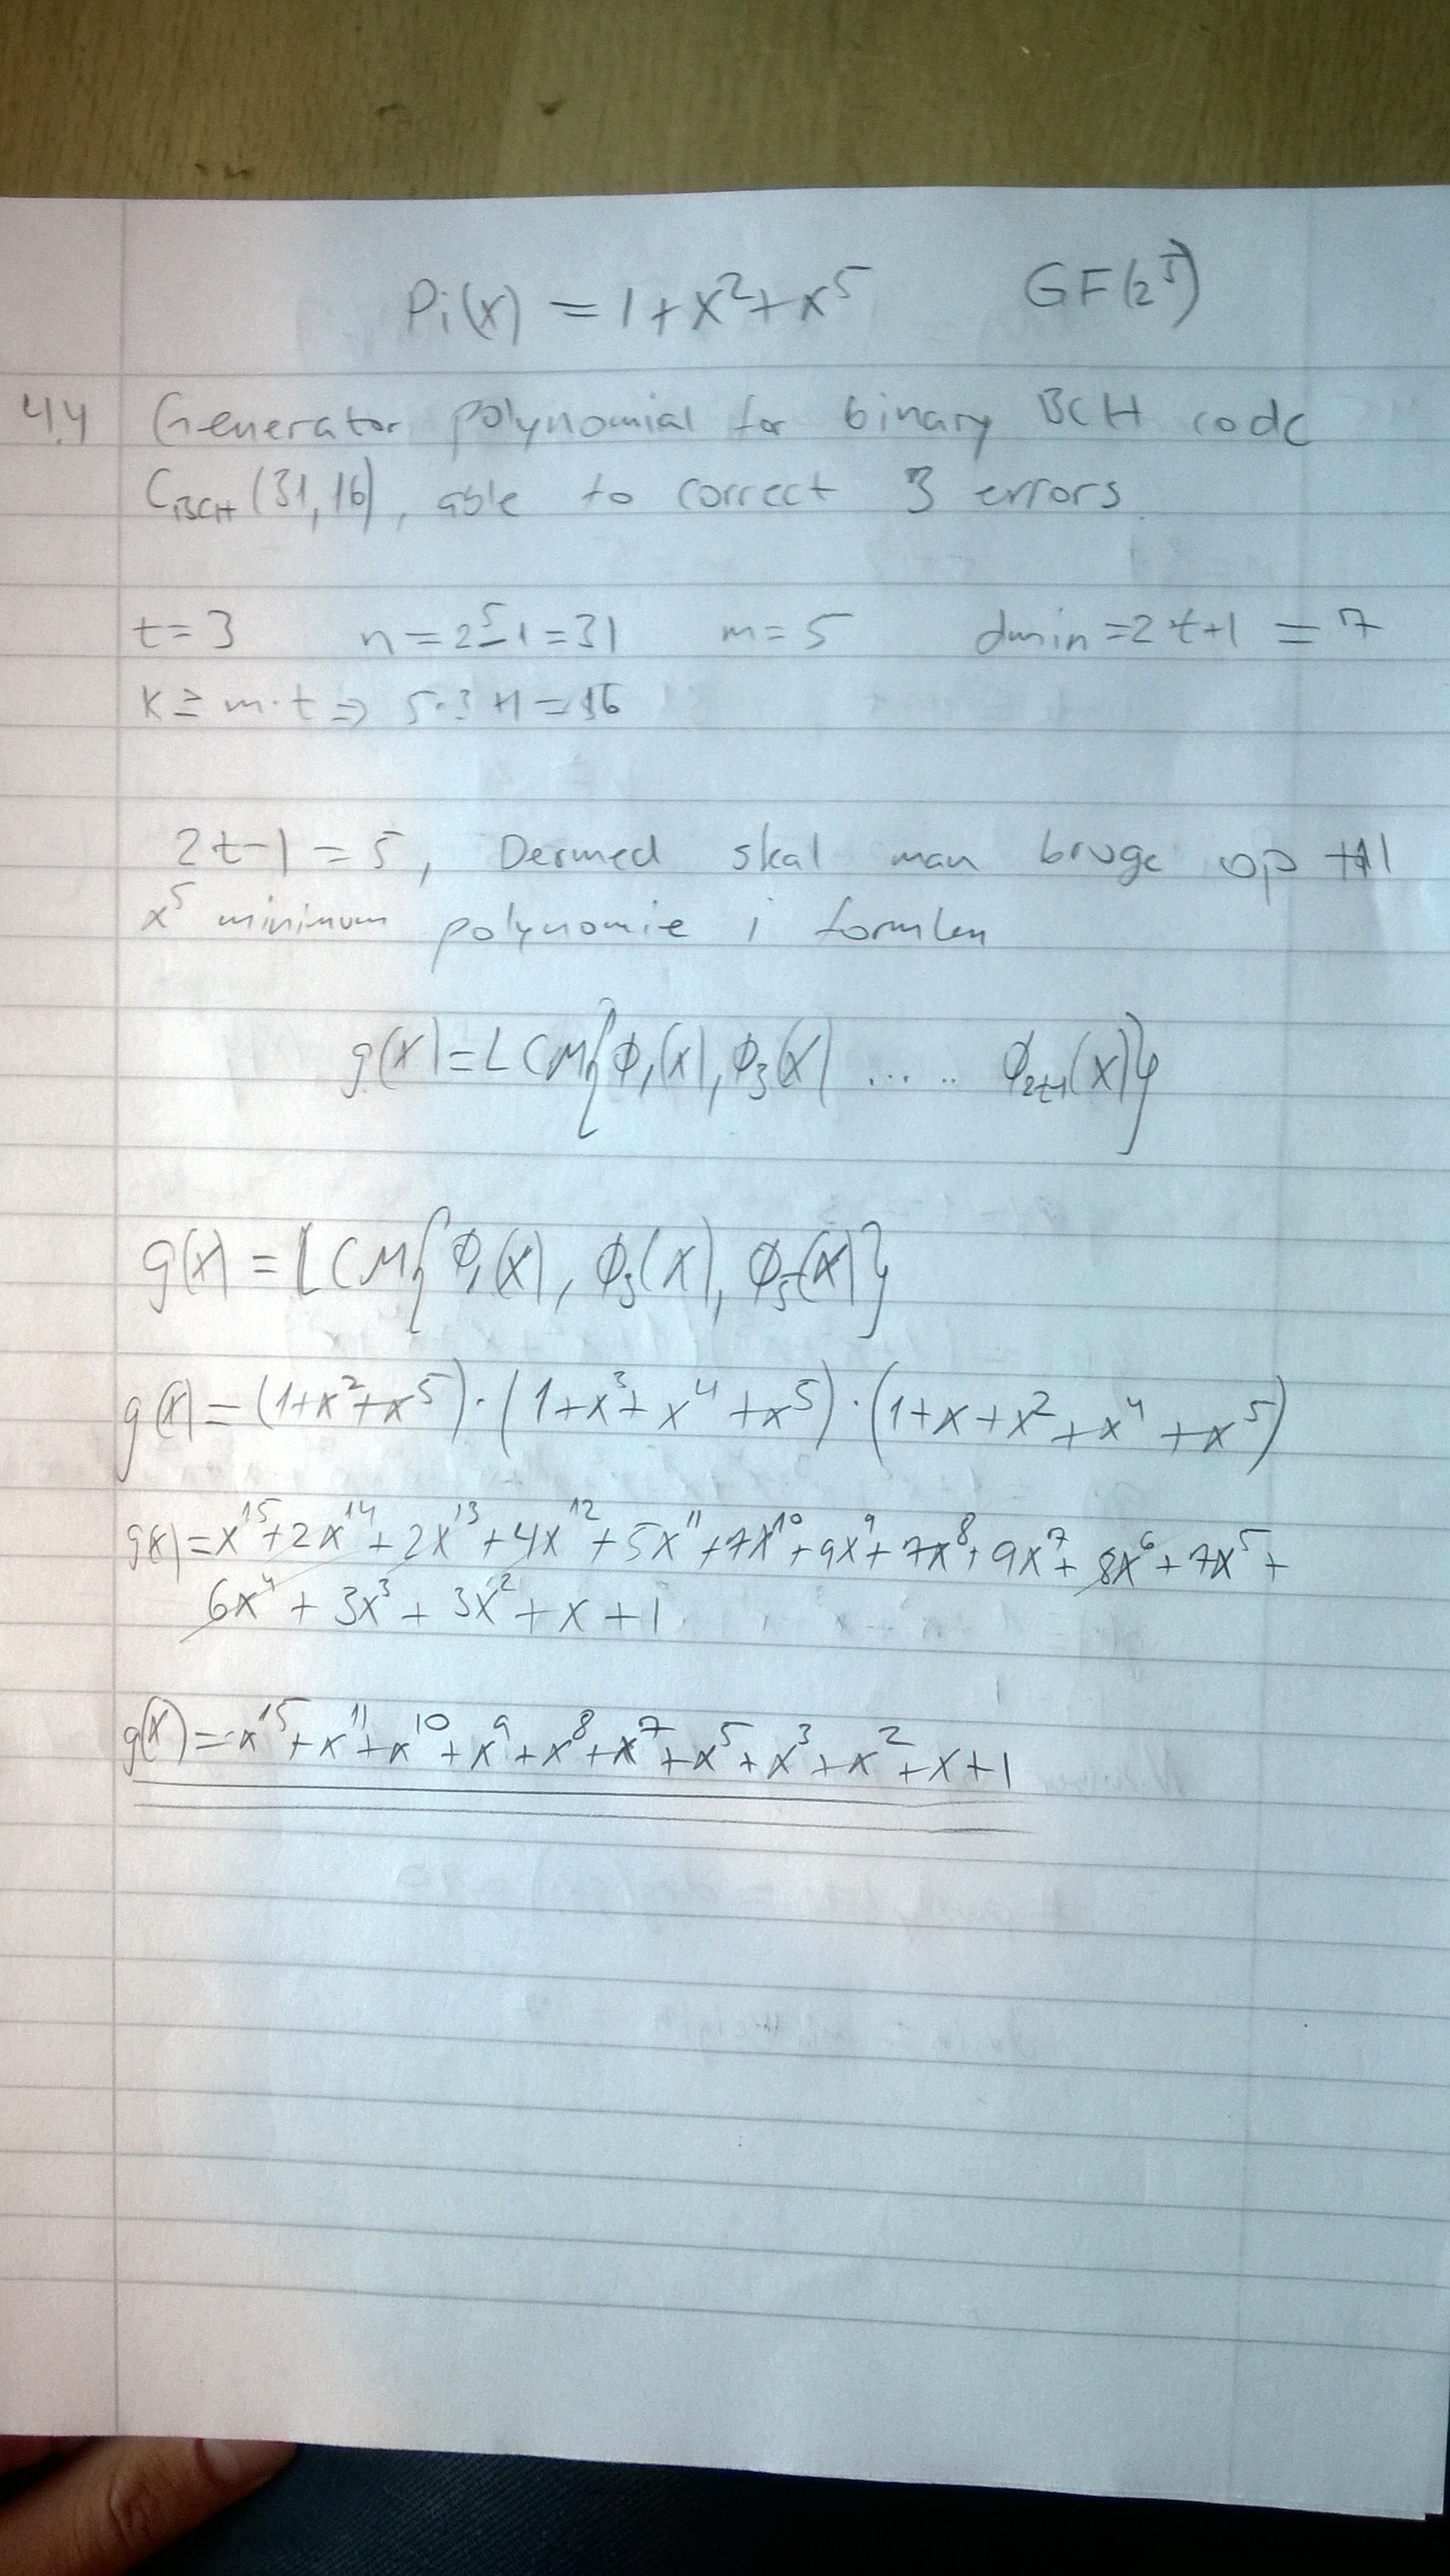 Pi(x) = 1+x²+x⁵ GF(2⁵)
4.4 Generator polynomial for binary BCH code
C_BCH (31,16), able to correct 3 errors.
t=3 n=2⁵-1=31 m=5 dmin=2·t+1=7
k≥m·t ⇒ 5·3+1=16
2t-1=5, Dermed skal man bruge op til
x⁵ minimum polynomie i formlen
g(x)=LCM{Φ₁(x), Φ₃(x) ..... Φ₂ₜ₋₁(x)}
g(x)=LCM{Φ₁(x), Φ₃(x), Φ₅(x)}
g(x)=(1+x²+x⁵)·(1+x³+x⁴+x⁵)·(1+x+x²+x⁴+x⁵)
g(x)=x¹⁵+2x¹⁴+2x¹³+4x¹²+5x¹¹+7x¹⁰+9x⁹+7x⁸+9x⁷+8x⁶+7x⁵+
6x⁴+3x³+3x²+x+1
g(x)=x¹⁵+x¹¹+x¹⁰+x⁹+x⁸+x⁷+x⁵+x³+x²+x+1